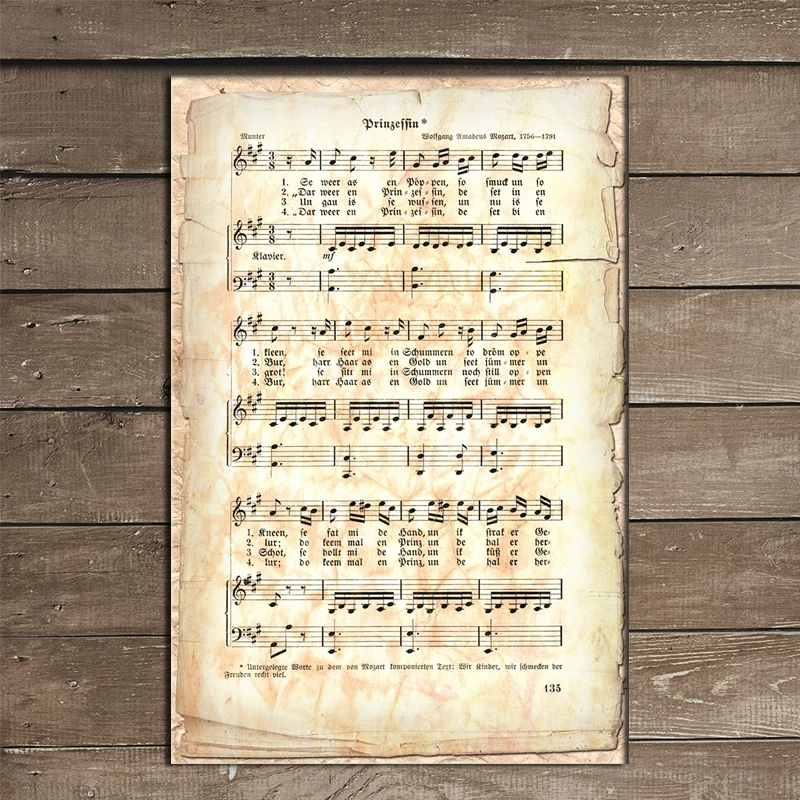 Prinzessin*
Munter Wolfgang Amadeus Mozart, 1756—1791
1. Se weer as en Pöp-pen, so smuck un so
2. „Dar weer en Prin-zes-sin, de set in en
3 Un gau is se wus-sen, un nu is se
4. „Dar weer en Prin-zes-sin, de set bi en
Klavier. mf
1. kleen, se seet mi in Schummern to dröm op-pe
2. Bur, harr Haar as en Gold un seet jüm-mer un
3. grot! se sitt mi in Schummern noch still op-pen
4. Bur, harr Haar as en Gold un seet jüm-mer un
1. Kneen, se fat mi de Hand, un ik strak er Ge-
2. lur; do keem mal en Prinz un de hal er her-
3 Schot, se hollt mi de Hand, un ik küß er Ge-
4. lur; do keem mal en Prinz, un de hal er her-
* Untergelegte Worte zu dem von Mozart komponierten Text: Wir Kinder, wir schmecken der
Freuden recht viel.
135